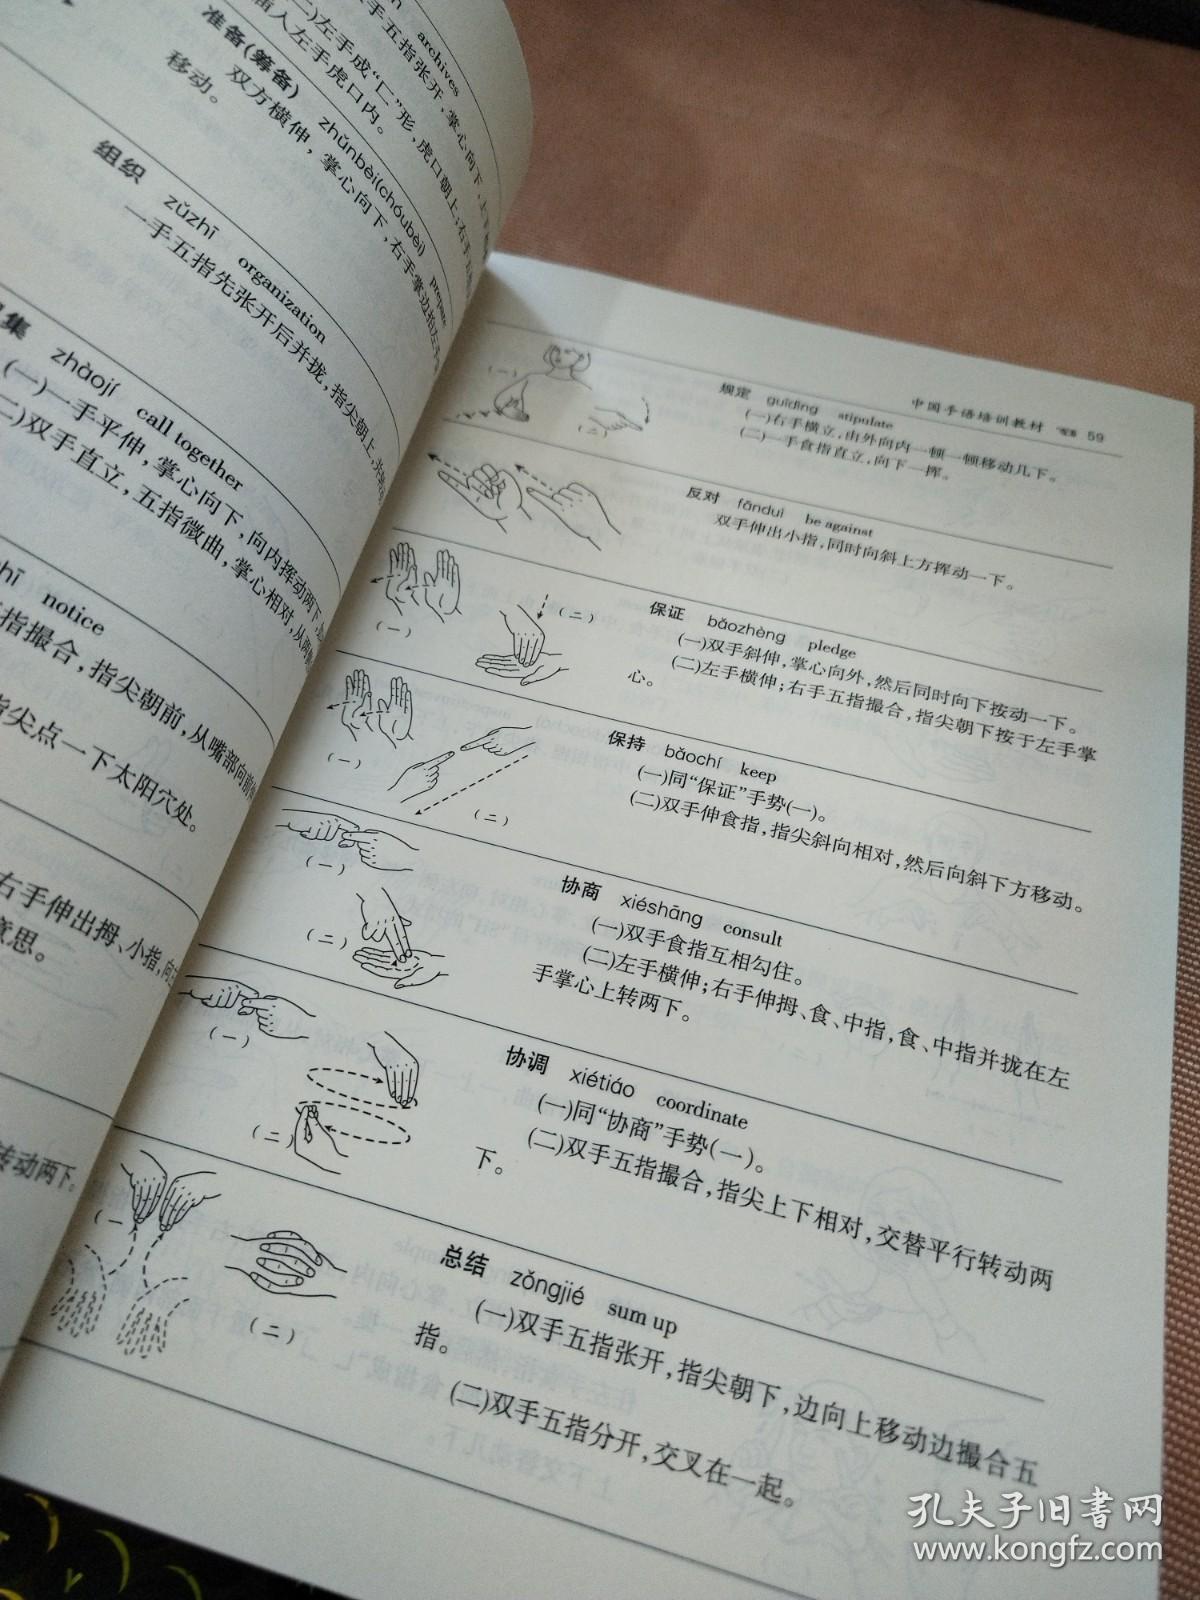 archives
双手五指张开，掌心向下，上下
(二)左手成“匚”形，虎口朝上；右手五指
插入左手虎口内。
准备(筹备) zhǔnbèi(chóubèi) prepare
双方横伸，掌心向下，右手掌边拍左手
移动。
组织 zǔzhī organization
一手五指先张开后并拢，指尖朝上，
集 zhàojí call together
(一)一手平伸，掌心向下，向内挥动两下，
(二)双手直立，五指微曲，掌心相对，从两侧
notice
指撮合，指尖朝前，从嘴部向前
指尖点一下太阳穴处。
右手伸出拇、小指，向
意思。
转动两下。
中国手语培训教材 59
规定 guīdìng stipulate
(一)右手横立，由外向内一顿一顿移动几下。
(二)一手食指直立，向下一挥。
(一)
(二)
反对 fǎnduì be against
双手伸出小指，同时向斜上方挥动一下。
保证 bǎozhèng pledge
(一)双手斜伸，掌心向外，然后同时向下按动一下。
(二)左手横伸；右手五指撮合，指尖朝下按于左手掌
心。
(一)
(二)
保持 bǎochí keep
(一)同“保证”手势(一)。
(二)双手伸食指，指尖斜向相对，然后向斜下方移动。
(一)
(二)
协商 xiéshāng consult
(一)双手食指互相勾住。
(二)左手横伸；右手伸拇、食、中指，食、中指并拢在左
手掌心上转两下。
(一)
(二)
协调 xiétiáo coordinate
(一)同“协商”手势(一)。
(二)双手五指撮合，指尖上下相对，交替平行转动两
下。
(一)
(二)
总结 zǒngjié sum up
(一)双手五指张开，指尖朝下，边向上移动边撮合五
指。
(二)双手五指分开，交叉在一起。
(一
(二)
孔夫子旧书网
www.kongfz.com